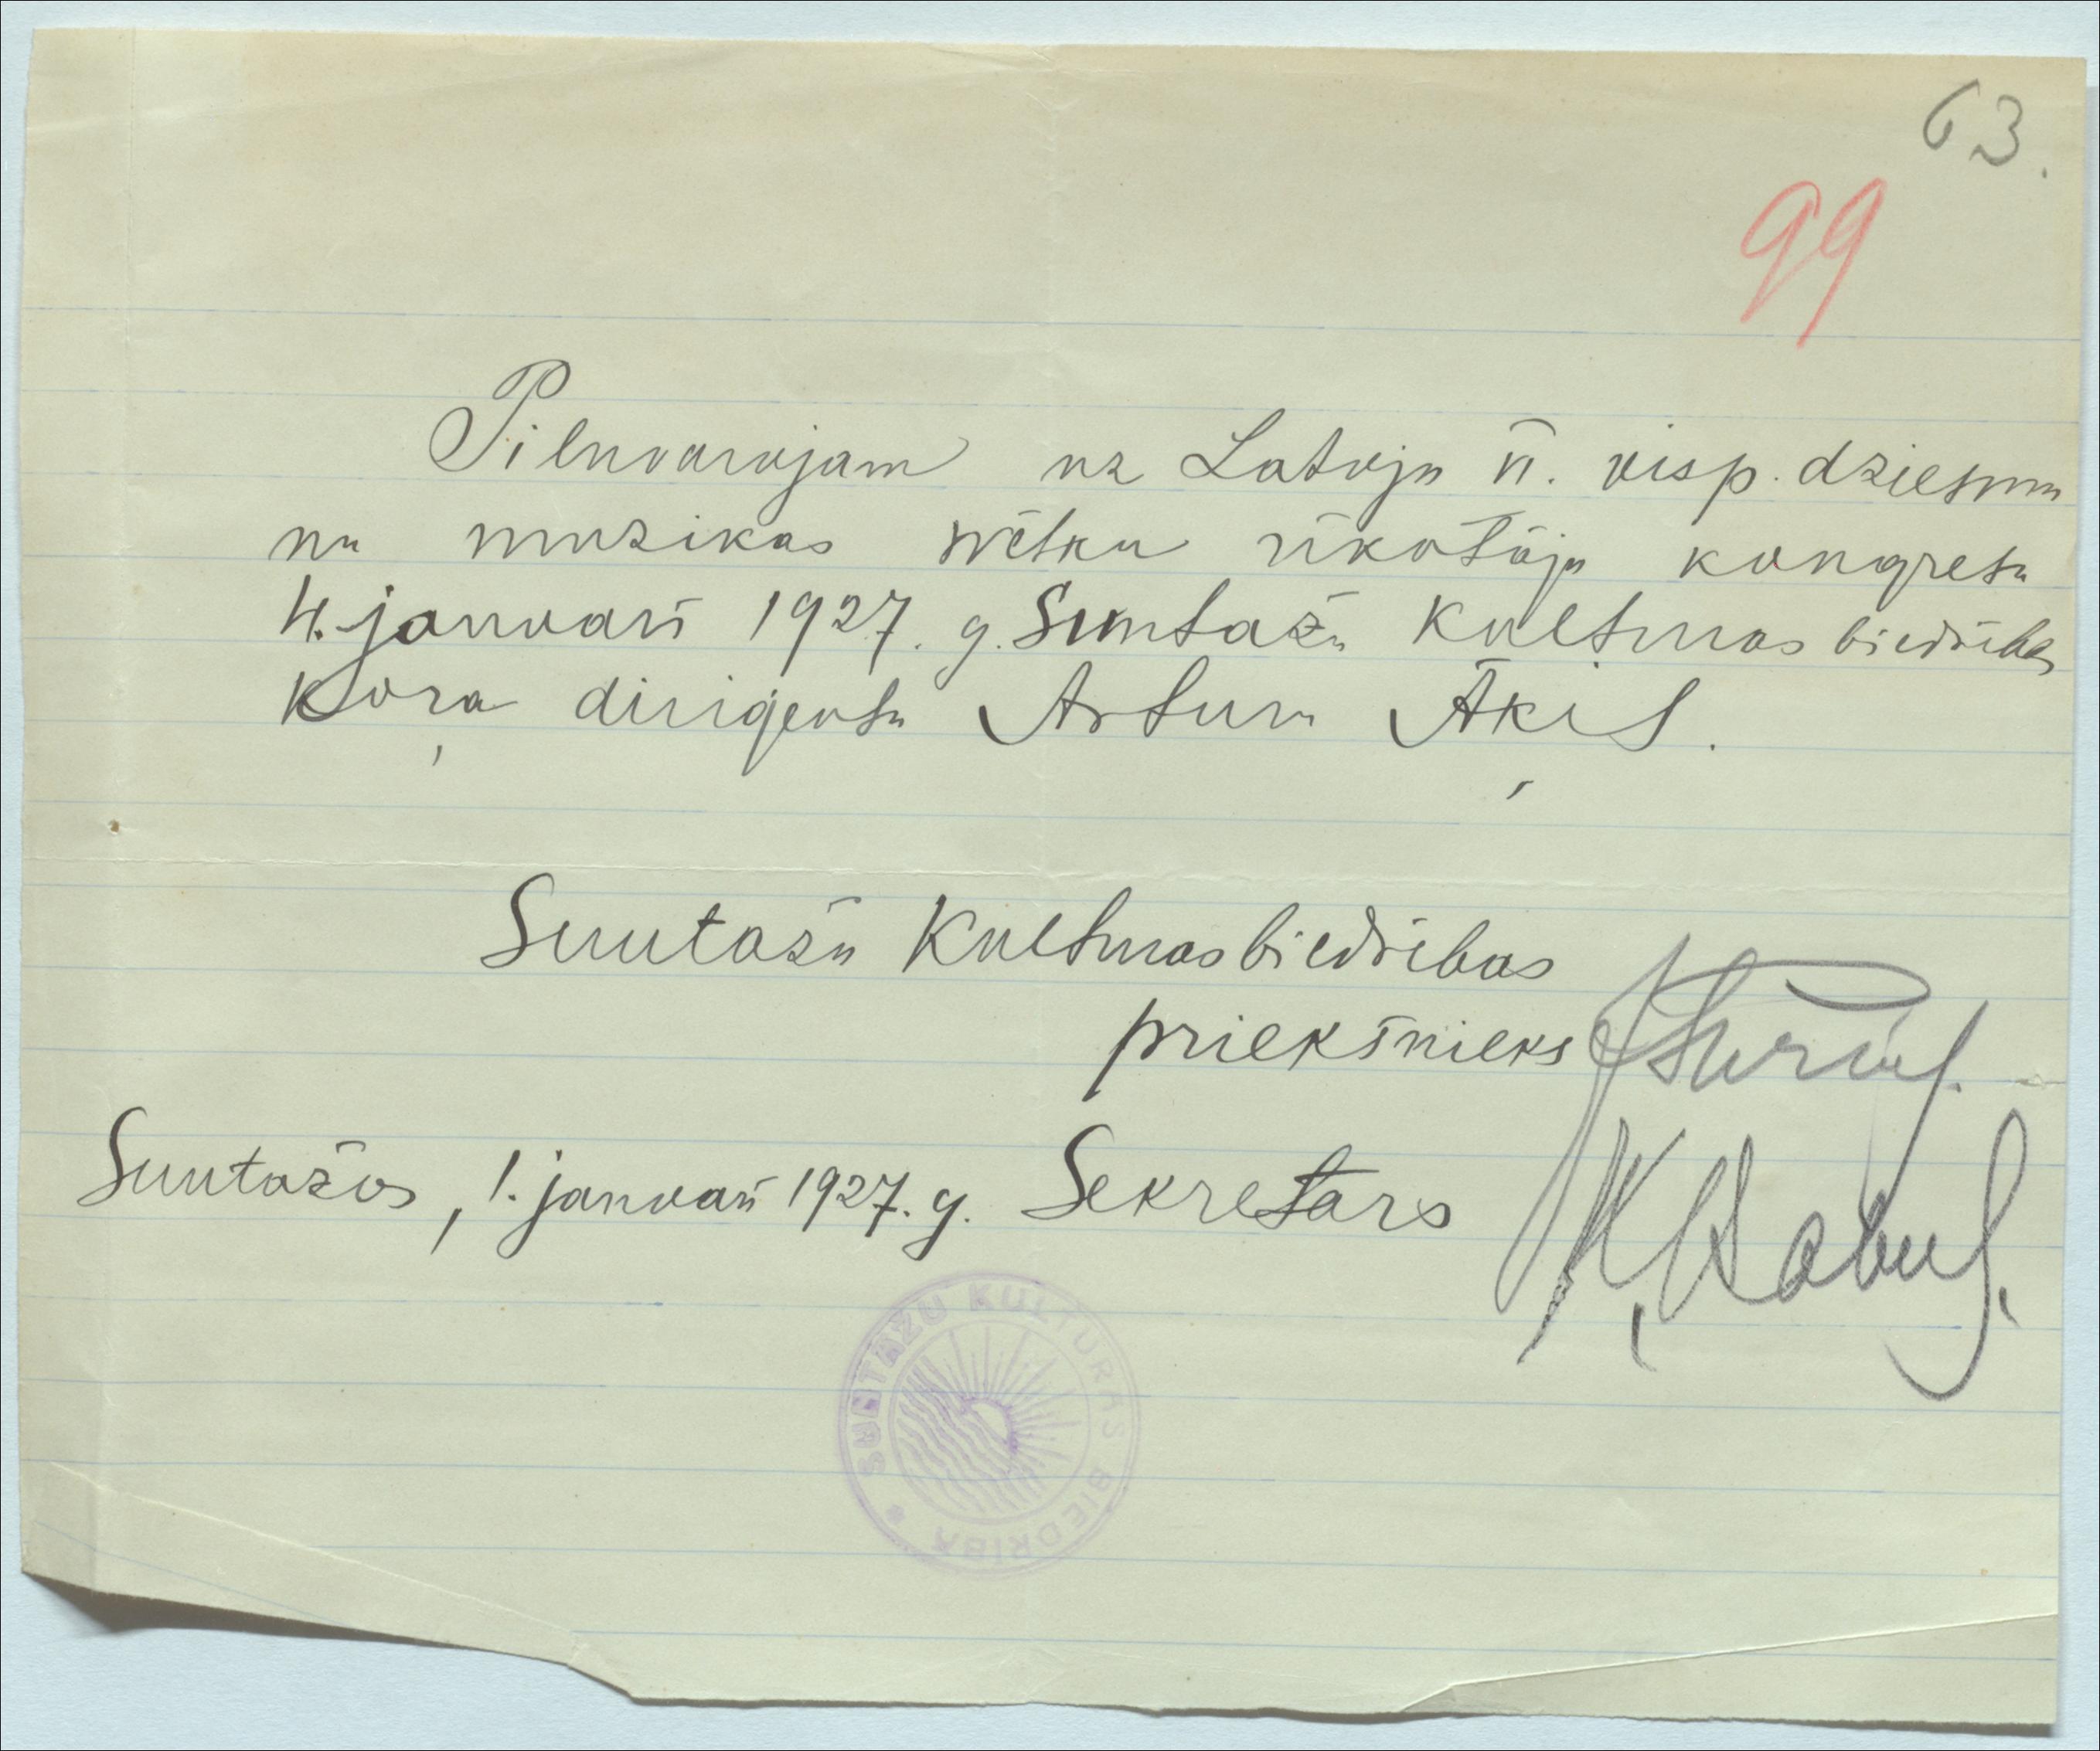 63.
99
Pilnvarojam uz Latvju VI. visp. dziesmu
un muzikas svētku rīkotāju kongresu
4. janvarī 1927. g. Suntažu Kulturas biedrības
koŗa diriģentu Arturu Āķis.
Suntažu Kulturas biedrības
priekšnieks
Suntažos, 1. janvarī 1927. g. Sekretars
SUNTAŽU KULTURAS BIEDRIBA *